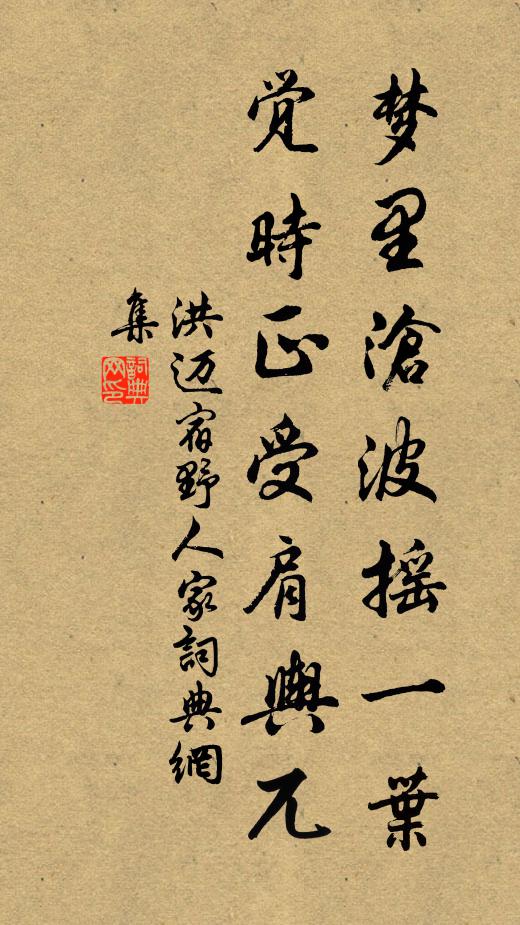 梦里滄波摇一葉
觉時正受肩輿兀
洪迈宿野人家詞典網
集
詞典网印